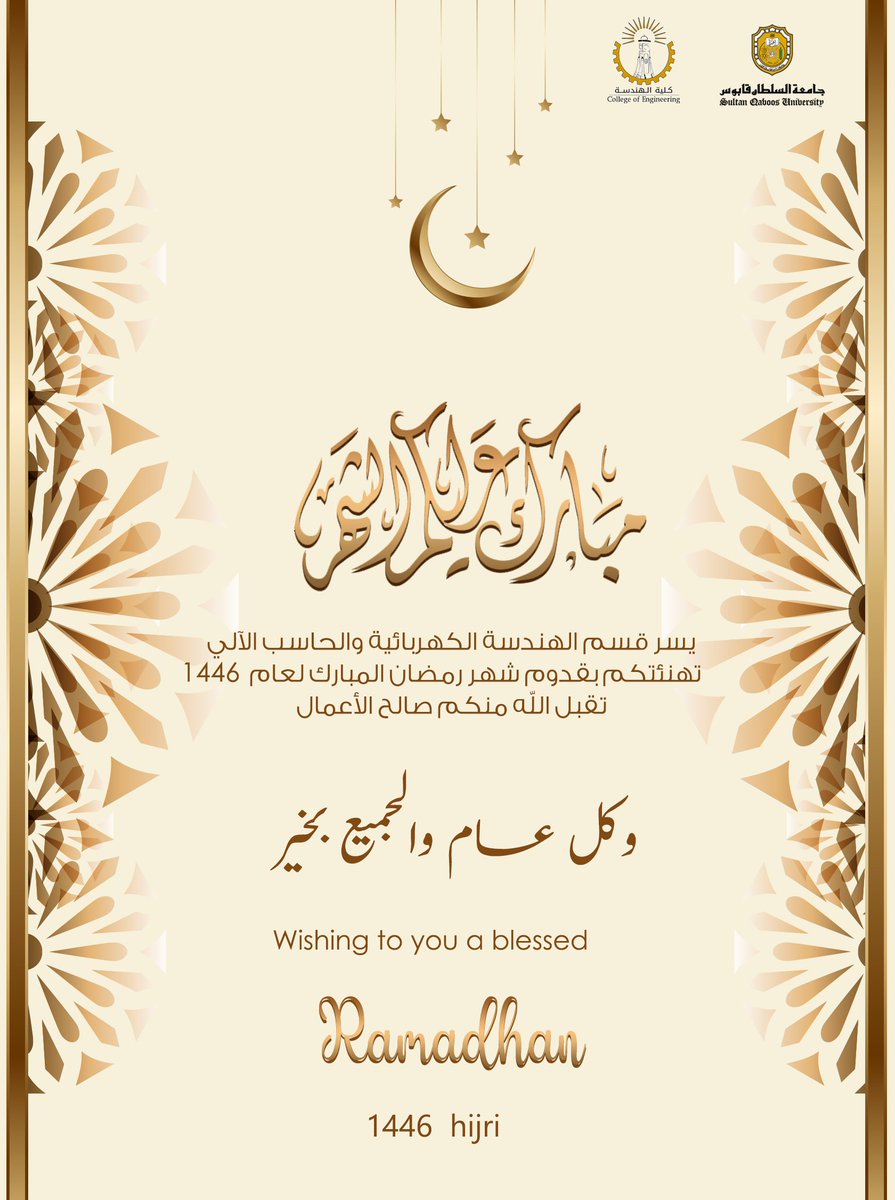 كلية الهندسة
College of Engineering
جامعة السلطان قابوس
Sultan Qaboos University
مبارك عليكم الشهر
يسر قسم الهندسة الكهربائية والحاسب الآلي
تهنئتكم بقدوم شهر رمضان المبارك لعام 1446
تقبل الله منكم صالح الأعمال
وكل عام والجميع بخير
Wishing to you a blessed
Ramadhan
1446 hijri